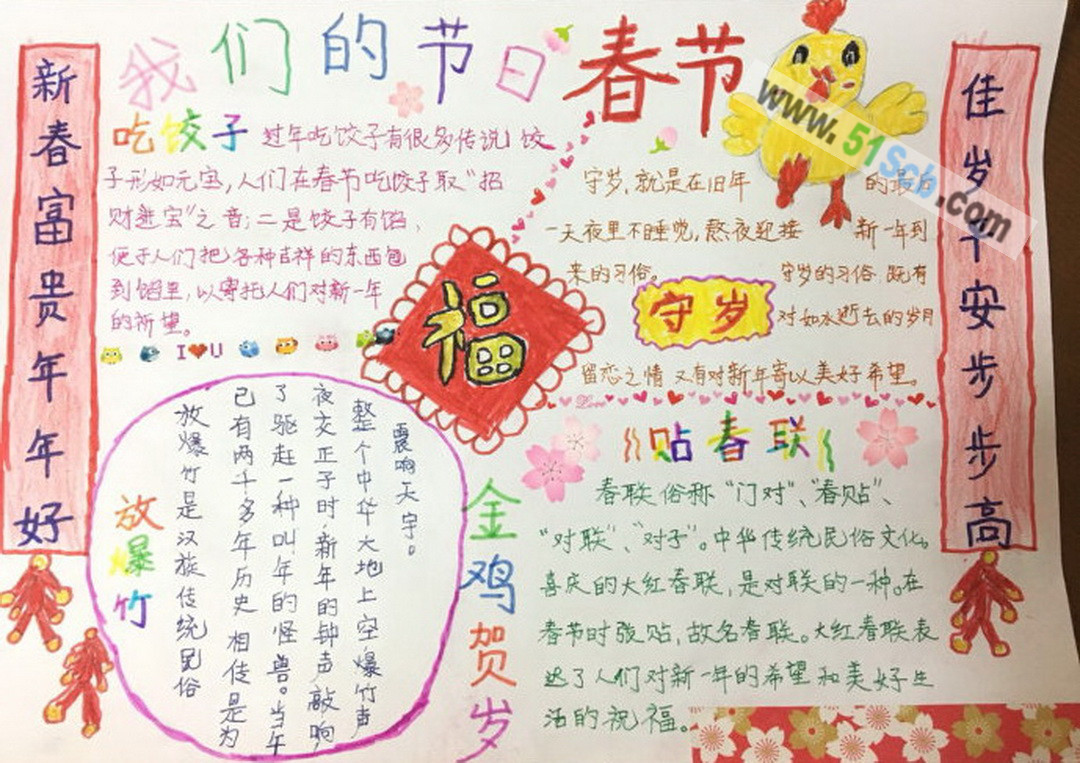 我们的节日 春节
新春富贵年年好
佳岁平安步步高
吃饺子
过年吃饺子有很多传说,饺
子形如元宝,人们在春节吃饺子取“招
财进宝”之音;二是饺子有馅,
便于人们把各种吉祥的东西包
到馅里,以寄托人们对新一年
的祈望。
I U
福
守岁,就是在旧年 的最后
一天夜里不睡觉,熬夜迎接 新一年到
来的习俗。 守岁的习俗,既有
守岁
对如水逝去的岁月
留恋之情 又有对新年寄以美好希望。
Love
放爆竹
放爆竹是汉族传统民俗
已有两千多年历史 相传是为
了驱赶一种叫年的怪兽。当年
夜交正子时,新年的钟声敲响
整个中华大地上空爆竹声
震响天宇。
金鸡贺岁
贴春联
春联俗称“门对”、“春贴”、
“对联”、“对子”。中华传统民俗文化。
喜庆的大红春联,是对联的一种。在
春节时张贴,故名春联。大红春联表
达了人们对新一年的希望和美好生
活的祝福。
www.51Scb.com